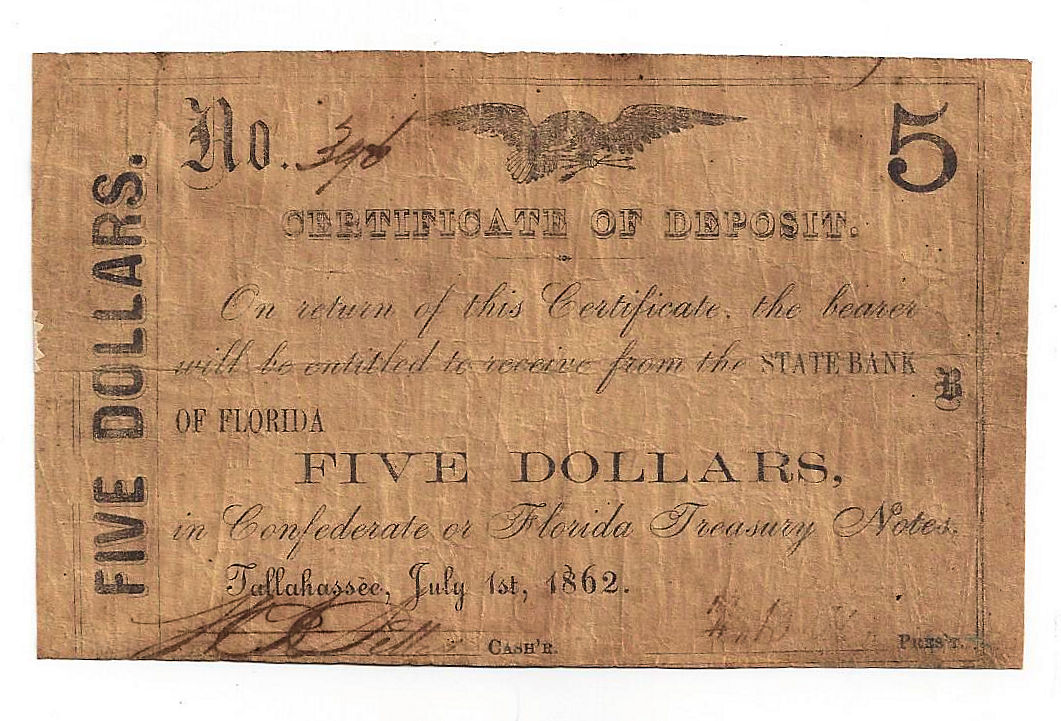 FIVE DOLLARS.
No. 396
5
CERTIFICATE OF DEPOSIT.
On return of this Certificate, the bearer
will be entitled to receive from the STATE BANK
B
OF FLORIDA
FIVE DOLLARS,
in Confederate or Florida Treasury Notes.
Tallahassee, July 1st, 1862.
CASH'R.
PRES'T.